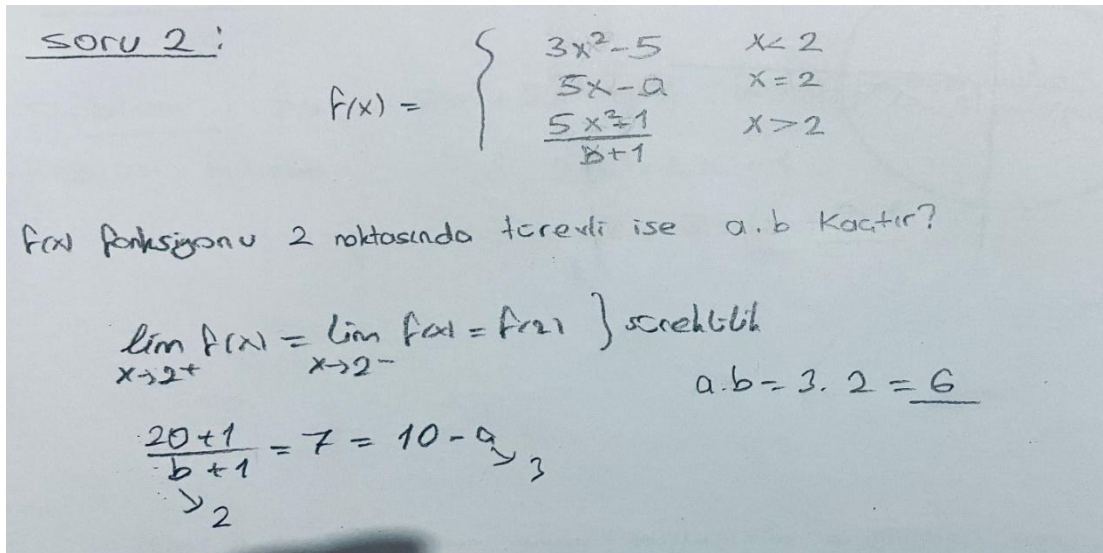 soru 2:
f(x) = { 3x²-5 x<2
5x-a x=2
5x²+1 / b+1 x>2
f(x) fonksiyonu 2 noktasında türevli ise a.b kaçtır?
lim x→2⁺ f(x) = lim x→2⁻ f(x) = f(2) } süreklilik
a.b = 3. 2 = 6
20+1 / b+1 = 7 = 10 - a → 3
→ 2